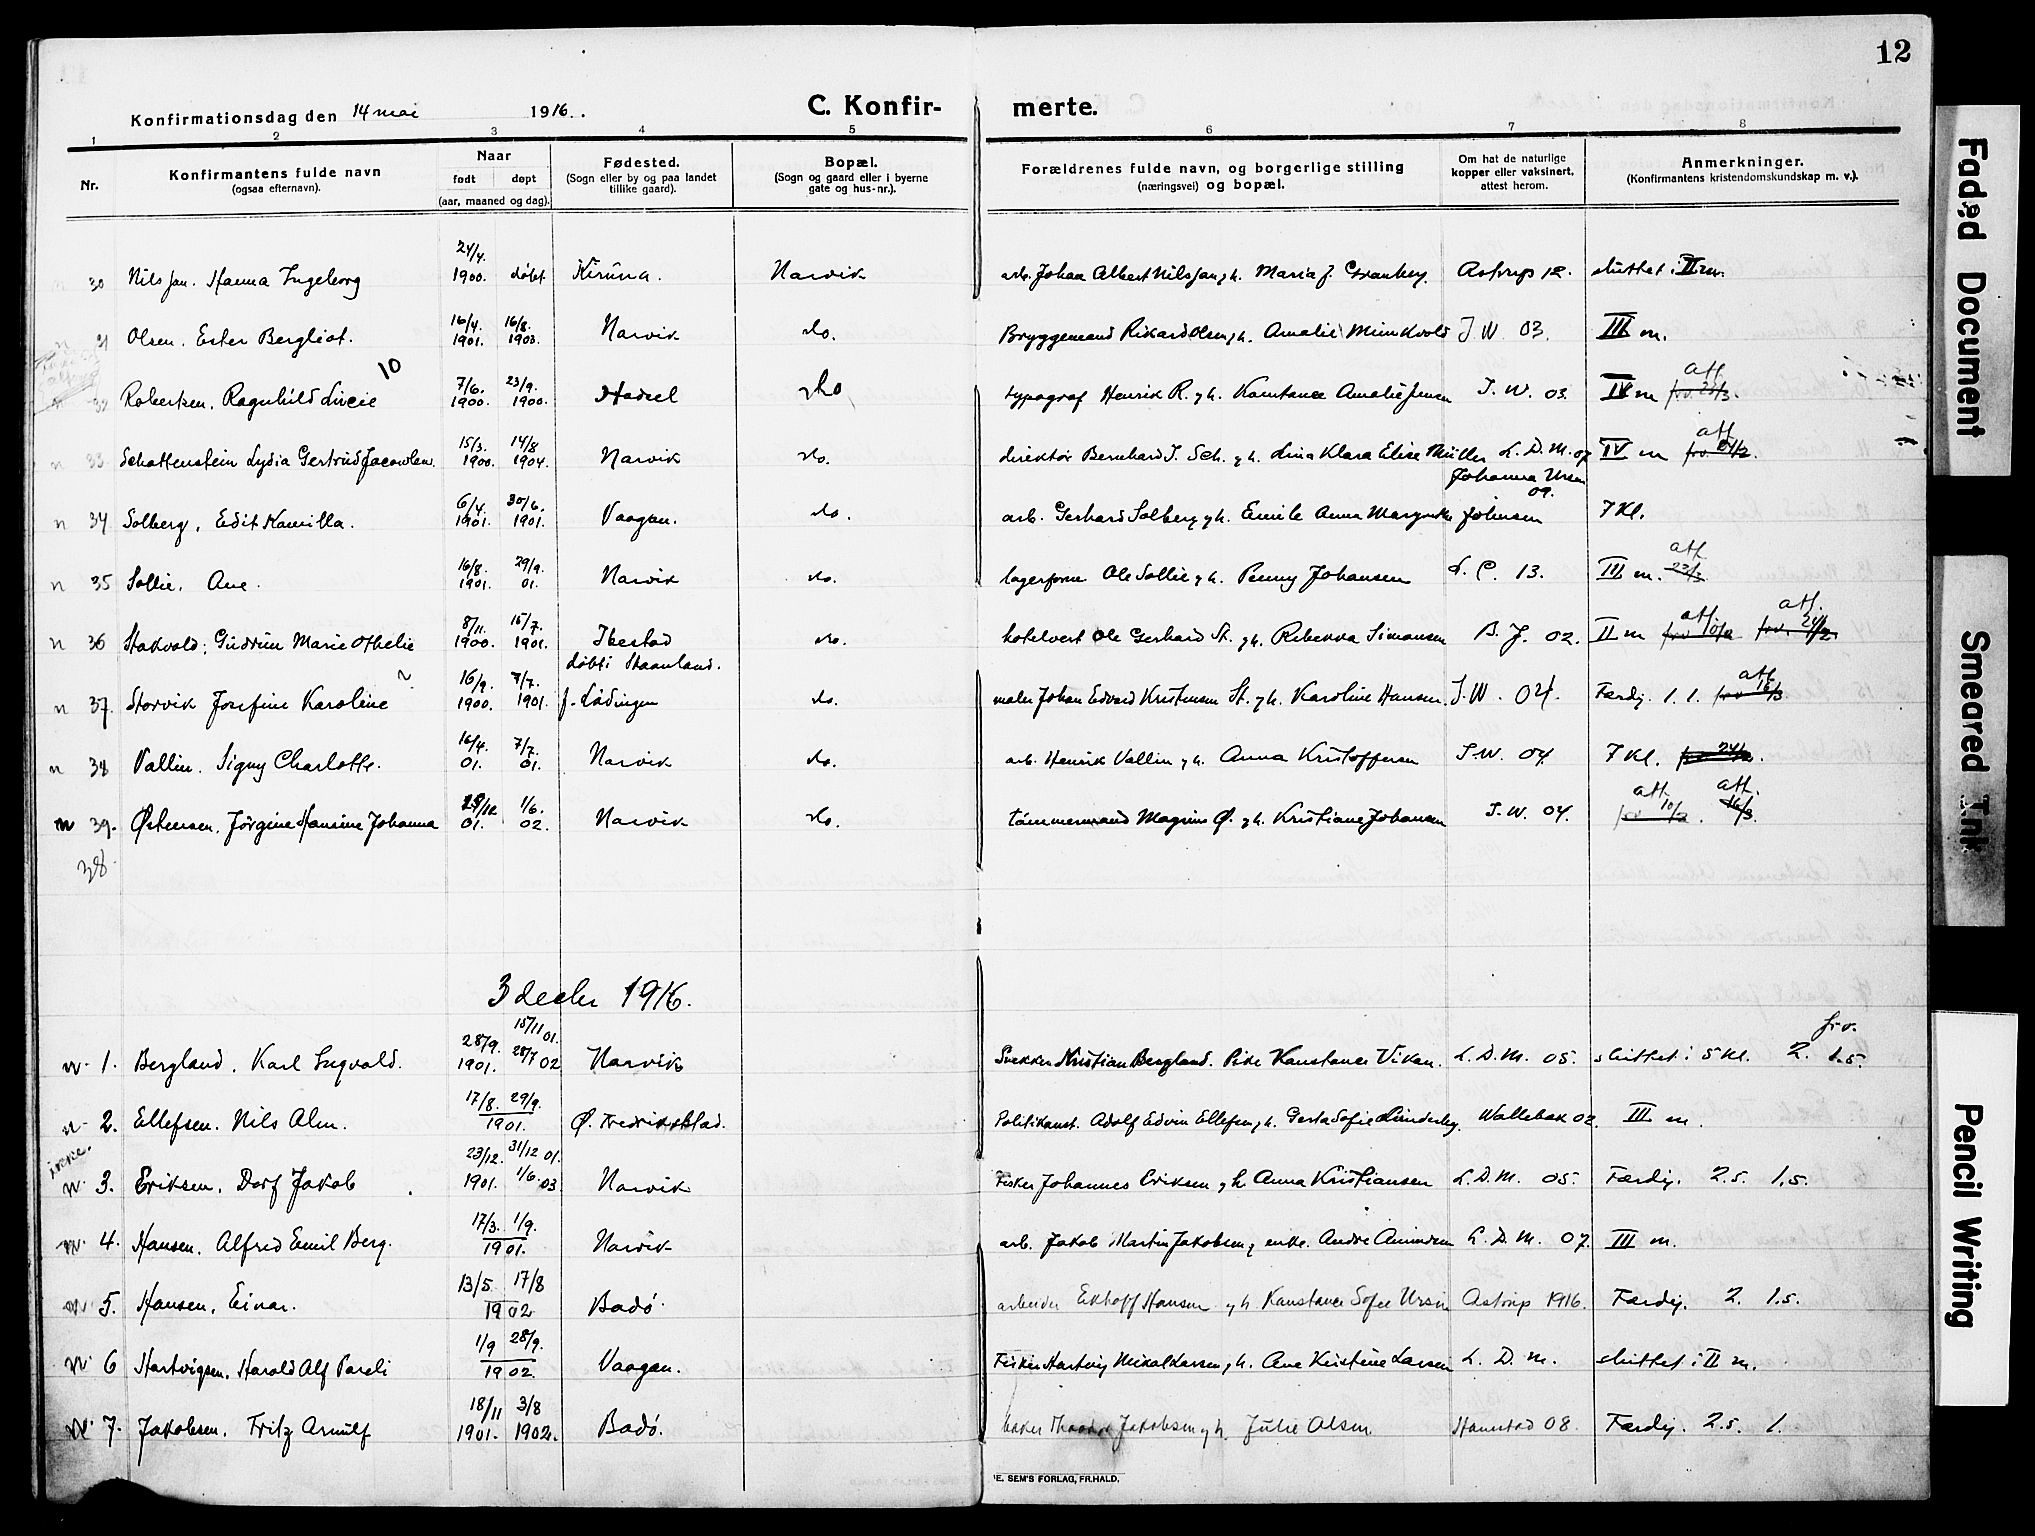 12
Konfirmationsdag den 14 mai 1916.
C. Konfir- merte.
1 2 3 4 5 6 7 8
Nr.
Konfirmantens fulde navn
(ogsaa efternavn).
Naar
født døpt
(aar, maaned og dag).
Fødested.
(Sogn eller by og paa landet
tillike gaard).
Bopæl.
(Sogn og gaard eller i byerne
gate og hus-nr.).
Forældrenes fulde navn, og borgerlige stilling
(næringsvei) og bopæl.
Om hat de naturlige
kopper eller vaksinert,
attest herom.
Anmerkninger.
(Konfirmantens kristendomskundskap m. v.).
24/4.
30 Nilsjan. Hanna Ingeborg 1900. døbt Kiruna. Narvik arb. Johan Albert Nilsjan, h. Maria J. Granberg. Astrup 12. sluttet i II m.
16/4. 16/8.
n 31 Olsen. Ester Bergliot. 1901. 1903. Narvik do. Bryggemand Rikard Olsen, h. Amalie Munkvold J. W. 03. III m.
10
7/6. 23/9. att
32 Robertsen. Ragnhild Liveie 1900. 1900. Hadsel do typograf Henrik R. g h. Konstance Amalie Jensen J. W. 03. IV m frv. 23/3.
15/3. 14/8 att
n 33. Schattenstein Lydia Gertrud Jacowlew. 1900. 1904. Narvik do. direktør Bernhard J. Sch. g h. Lina Klara Elise Müller L. D. M. 07 IV m frv 24/2.
6/4. 30/6. Johanna Ursin
09.
n 34 Solberg, Edit Kamilla. 1901. 1901. Vaagan. do. arb. Gerhard Solberg, g h. Emile Anna Margrethe Johnsen 7 Kl.
16/8. 29/9. att
n 35 Sollie. Ane. 1901. 01. Narvik do. lagerform Ole Sollie g h. Penny Johansen L. C. 13. III m. 23/3
8/11. 15/7. att att.
n 36 Stokvold. Gudrun Marie Othelie 1900. 1901. Ibestad do. hotelvert Ole Gerhard St. g h. Rebekka Simonsen B. J. 02. II m frv 10/2 frv. 24/2
døbt i Skaanland.
16/9. 7/7. att
n 37. Storvik Josefine Karoline 1900. 1901. f. Lødingen do. maler Johan Edvard Kristensen St. g h. Karoline Hansen. J. W. 04. Færdig. 1. 1. frv 16/3
16/4. 7/7.
n 38 Vallin. Signy Charlotte. 01. 01. Narvik do. arb. Henrik Vallin g h. Anna Kristoffersen J. W. 04. 7 Kl. frv 24/2.
1/6. att att.
n 39. Østensen. Jørgine Hansine Johanna 01. 02. Narvik do. tømmermand Magnus Ø. g h. Kristiane Johansen J. W. 04. frv 10/2. 16/3.
38
3 decbr 1916.
15/11 01. frv.
28/9.
n 1. Bergland, Karl Ingvald. 1901. 28/7 02 Narvik Snekker Kristian Bergland. Pike Konstance Vikan. L. D. M. 05. sluttet i 5 Kl. 2. 1.5.
17/8. 29/9.
n 2. Ellefsen. Nils Alm. 1901. Ø. Fredrikstad. Politikonst. Adolf Edvin Ellefsen, h. Gerta Sofie Lunderby. Wallebek 02. III m.
ikke. 23/12. 31/12 01.
n 3. Eriksen. Dorf Jakob 1901. 1/6 03 Narvik Fisker Johannes Eriksen g h Anna Kristiansen L. D. M. 05. Færdig. 2.5. 1.5.
17/3. 1/9.
n 4. Hansen. Alfred Emil Berg. 1901. Narvik arb. Jakob Martin Jakobsen, enke. Andre Amundsen L. D. M. 07. III m.
13/5. 17/8
n 5. Hansen, Einar. 1902 Bodø. arbeider Ekhoff Hansen g h. Konstance Sofie Ursin Astrup 1916. Færdig. 2. 1.5.
1/9 28/9.
n 6 Hartvigsen. Harald Alf Pareli 1902. Vaagan. Fisker Hartvig Nikolai Larsen, h. Ane Kristine Larsen L. D. M. sluttet i II m.
18/11 3/8
n 7. Jakobsen, Fritz Arnulf 1901. 1902. Bodø. baker Jakobsen g h. Julie Olsen. Hanestad 08. Færdig. 2.5. 1.
E. SEM'S FORLAG, FR.HALD.
Faded Document
Smeared Ink
Pencil Writing